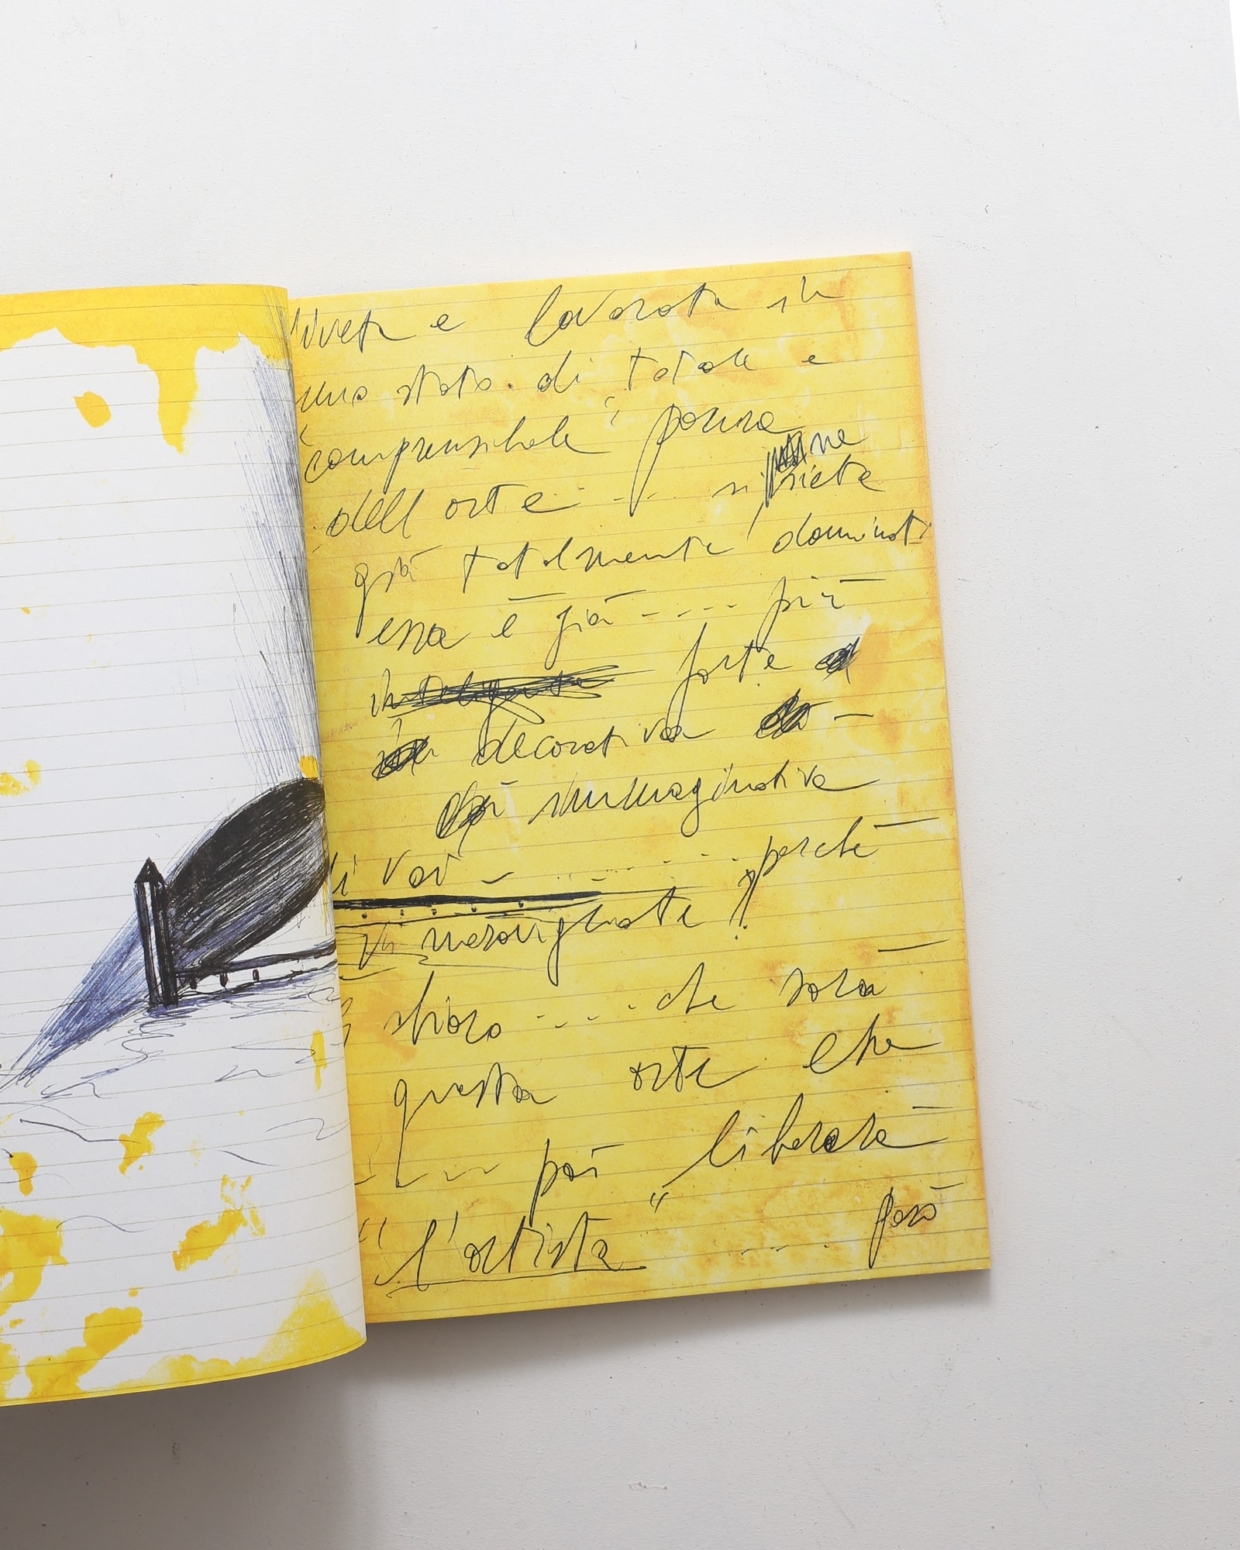 vivete e lavorate in
uno stato di totale e
"comprensibile" paura
dell'arte ---- ne
siete
già totalmente dominati
essa è già ---- più
intelligente forte
decorativa
immaginativa
di voi - ........ perchè
vi meravigliate?
vi sfioro ---- che sarà
questa arte che
---- poi libererà
"l'artista" .... però